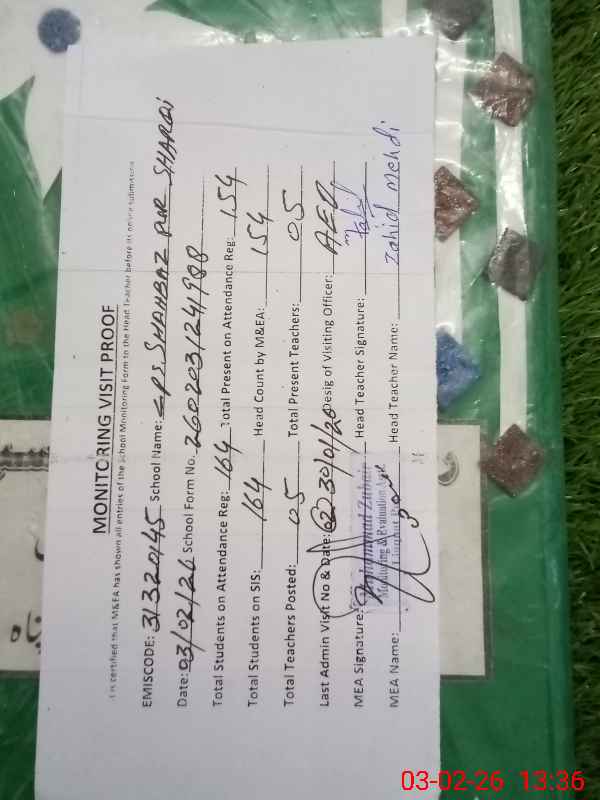 MONITORING VISIT PROOF
It is certified that M&EA has shown all entries of the School Monitoring Form to the Head Teacher before its online submission
EMISCODE: 31320145 School Name: GPS SHAHBAZ PUR SHARQI
Date: 03/02/26 School Form No. 2602031241988
Total Students on Attendance Reg: 164 Total Present on Attendance Reg: 154
Total Students on SIS: 164 Head Count by M&EA: 154
Total Teachers Posted: 05 Total Present Teachers: 05
Last Admin Visit No & Date: 02 30/01/26 Desig of Visiting Officer: AEO
MEA Signature: Head Teacher Signature: Zahid
Muhammad Zubair
Monitoring & Evaluation
MEA Name: Head Teacher Name: Zahid Mehdi
03-02-26 13:36